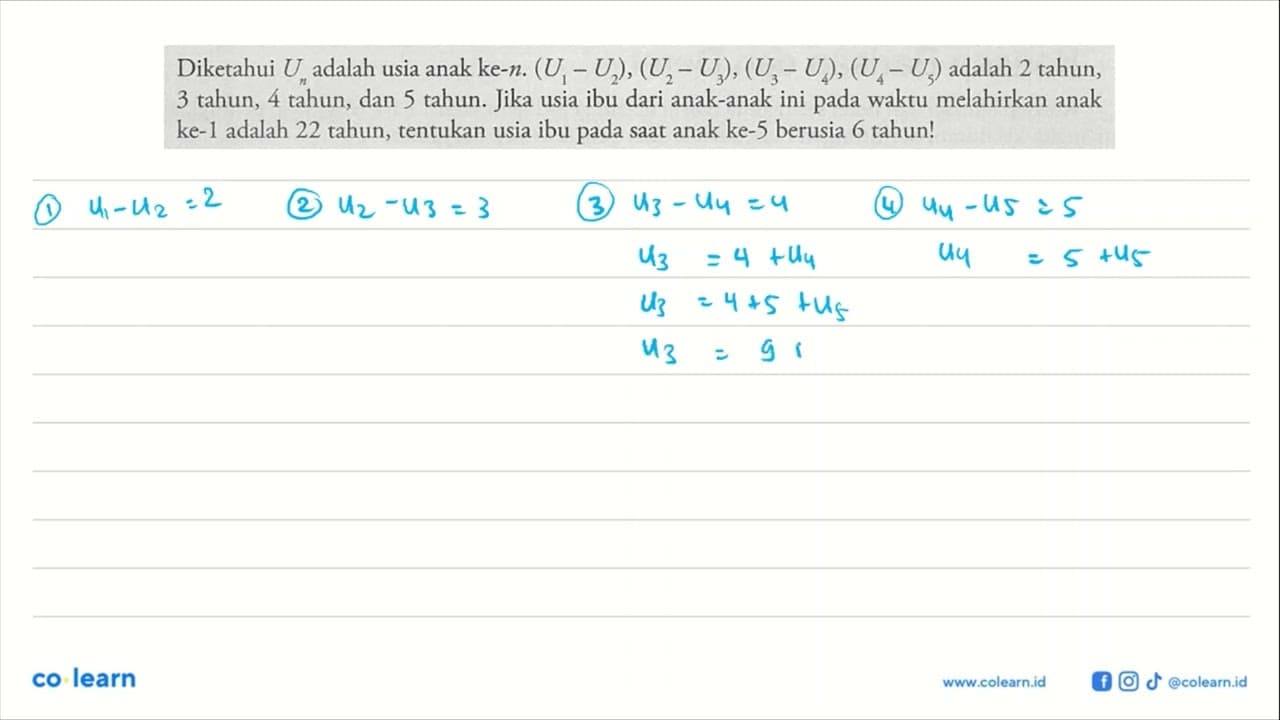 Diketahui Uₙ adalah usia anak ke-n. (U₁ – U₂), (U₂ – U₃), (U₃ – U₄), (U₄ – U₅) adalah 2 tahun,
3 tahun, 4 tahun, dan 5 tahun. Jika usia ibu dari anak-anak ini pada waktu melahirkan anak
ke-1 adalah 22 tahun, tentukan usia ibu pada saat anak ke-5 berusia 6 tahun!
① u₁ - u₂ = 2 ② u₂ - u₃ = 3 ③ u₃ - u₄ = 4 ④ u₄ - u₅ = 5
u₃ = 4 + u₄ u₄ = 5 + u₅
u₃ = 4 + 5 + u₅
u₃ = 9
co learn www.colearn.id @colearn.id